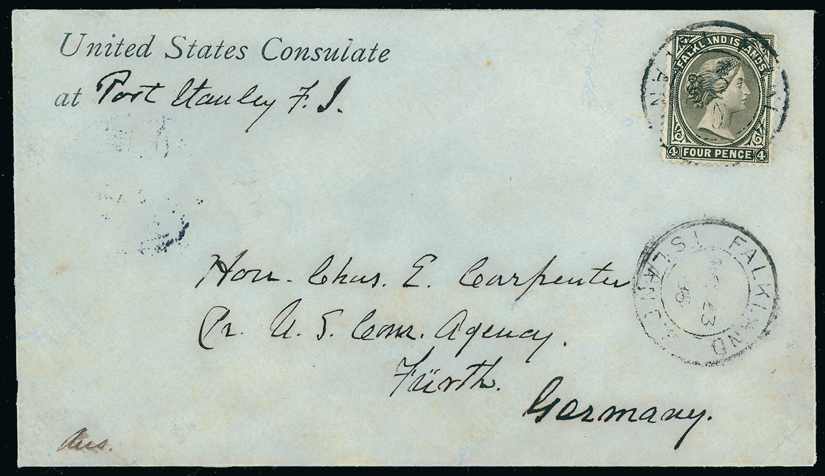 United States Consulate
at Port Stanley F. I.
FALKLAND ISLANDS
4 FOUR PENCE 4
FALKLAND ISLANDS
23
Hon. Chas. E. Carpenter
U. S. Agency.
Fürth.
Germany.
Ans.